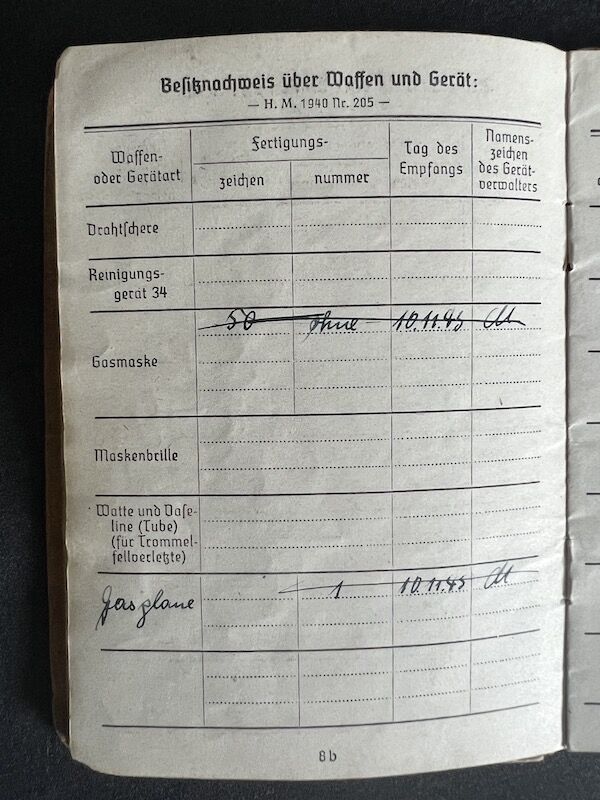 Besitznachweis über Waffen und Gerät:
— H. M. 1940 Nr. 205 —
Waffen-
oder Gerätart
Fertigungs-
zeichen
nummer
Tag des
Empfangs
Namens-
zeichen
des Gerät-
verwalters
Drahtschere
Reinigungs-
gerät 34
Gasmaske
50 ohne 10.11.43
Maskenbrille
Watte und Vase-
line (Tube)
(für Trommel-
fellverletzte)
Gasplane
1 10.11.43
8b